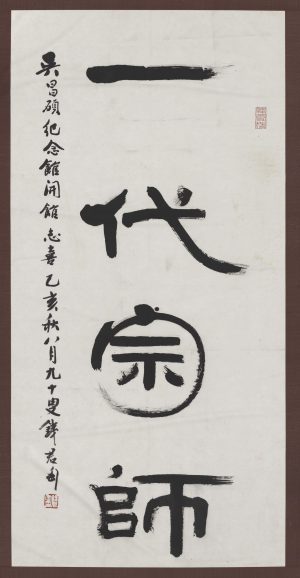 一代宗師
吴昌碩纪念館開館志喜乙亥秋八月九十叟錢君匋